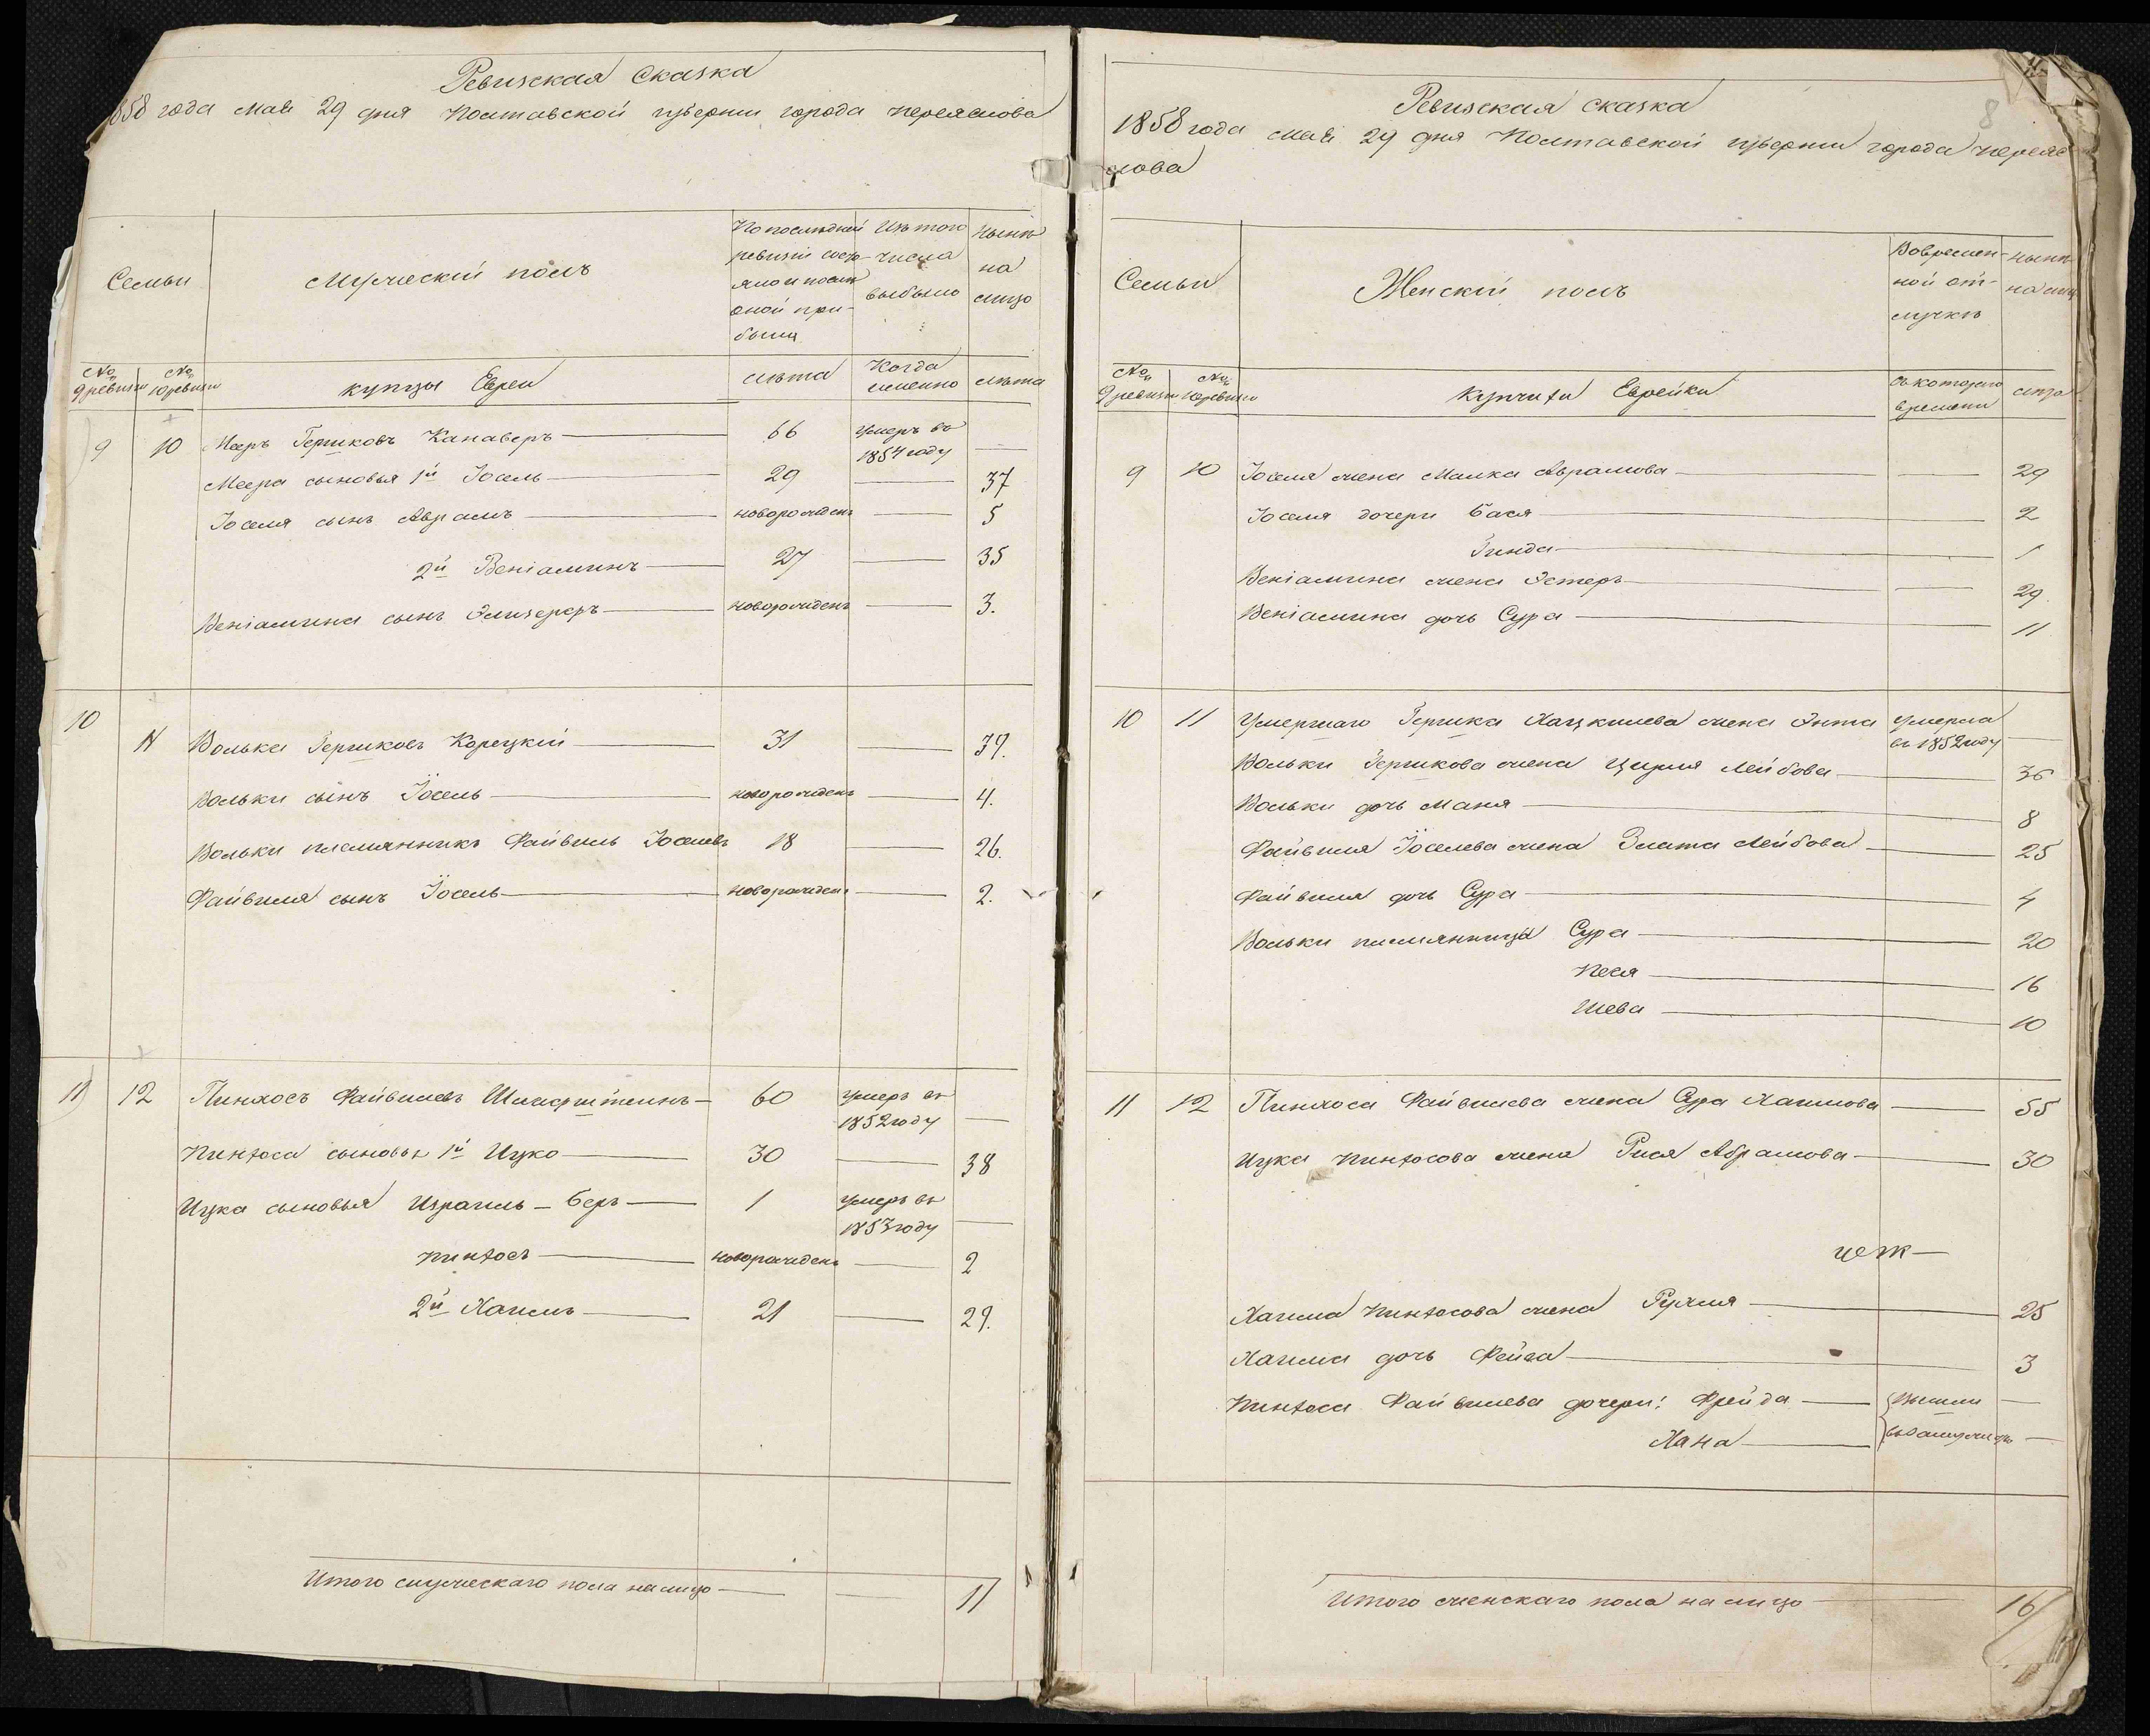 Ревизская сказка
1858 года мая 29 дня Полтавской губернии города Переяслова
Семьи
Мужеский полъ
По последней ревизіи состояло и после оной прибыло
Изъ того числа выбыло
Ныне на лицо
№ 9 ревизіи
№ 10 ревизіи
купцы Евреи
лѣта
Когда именно
лѣта
9 10 Мееръ Гершковъ Канаверъ 66 Умеръ въ 1854 году —
Меера сыновья 1й Іосель 29 — 37
Іоселя сынъ Аврамъ новорожденъ — 5
2й Веніаминъ 27 — 35
Веніамина сынъ новорожденъ — 3.
10 11 Волька Гершковъ Корецкій 31 — 39.
Вольки сынъ Іосель новорожденъ — 4.
Вольки племянникъ Файвиль Іоселевъ 18 — 26.
Файвиля сынъ Іосель новорожденъ — 2.
11 12 Пинхосъ Файвилевъ 60 Умеръ въ 1852 году —
Пинхоса сыновья 1й Ицко 30 — 38
Ицка сыновья Израиль-Беръ 1 Умеръ въ 1853 году —
Пинхосъ новорожденъ — 2
2й Хаимъ 21 — 29.
Итого мужескаго пола на лицо — 11
8
Ревизская сказка
1858 года мая 29 дня Полтавской губернии города Переяс
лова
Семьи
Женскій полъ
Во временной отлучкѣ
ныне на лицо
№ 9 ревизіи
№ 10 ревизіи
Купчихи Еврейки
Съ котораго времени
лѣта
9 10 Іоселя жена Малка Аврамова — 29
Іоселя дочери Бася 2
Гинда 1
Веніамина жена Эстеръ — 29.
Веніамина дочь Сура — 11
10 11 Умершаго Гершка Хацкилева жена Энта Умерла въ 1852 году —
Вольки Гершкова жена Цирля Лейбова 36
Вольки дочь Маня 8
Файвиля Іоселева жена Злата Лейбова 25
Файвиля дочь Сура 4
Вольки племянницы Сура 20
Песя 16
Шева 10
11 12 Пинхоса Файвилева жена Сура Хаимова 55
Ицка Пинхосова жена Рися Абрамова 30
Хаима Пинхосова жена Рухля 25
Хаима дочь Фейга 3
Пинхоса Файвилева дочери: Фрейда — Вышли —
Хана — въ замужство —
Итого женскаго пола на лицо 16